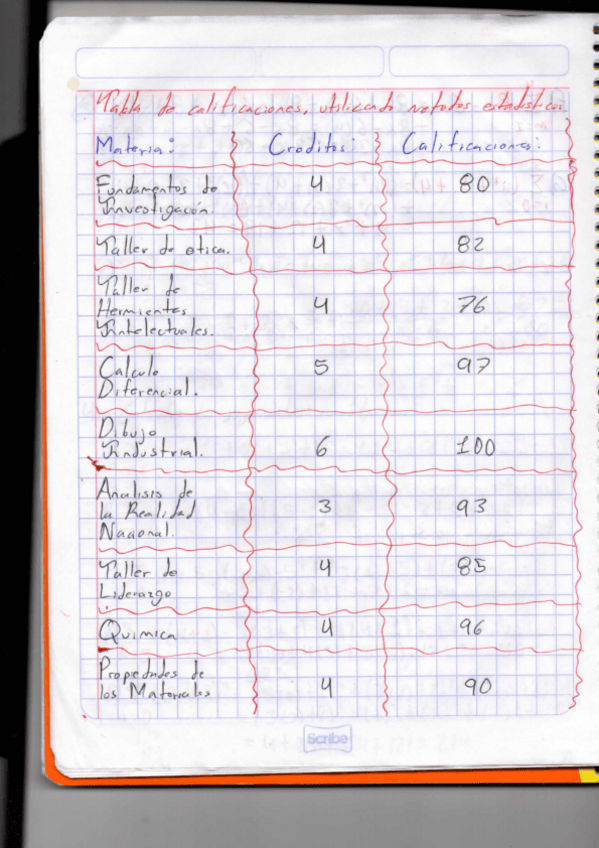 Tabla de calificaciones, utilizando metodos estadisticos.
Materia: Creditos: Calificaciones:
Fundamentos de 4 80
Investigación.
Taller de etica. 4 82
Taller de
Hermientas 4 76
Intelectuales.
Calculo 5 97
Diferencial.
Dibujo
Industrial. 6 100
Analisis de
la Realidad 3 93
Nacional.
Taller de 4 85
Liderazgo
Quimica 4 96
Propiedades de
los Materiales 4 90
Scribe